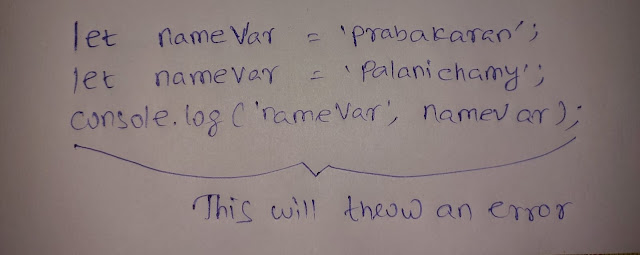 let nameVar = 'Prabakaran';
let namevar = 'Palanichamy';
console.log('nameVar', namevar);
This will theow an error